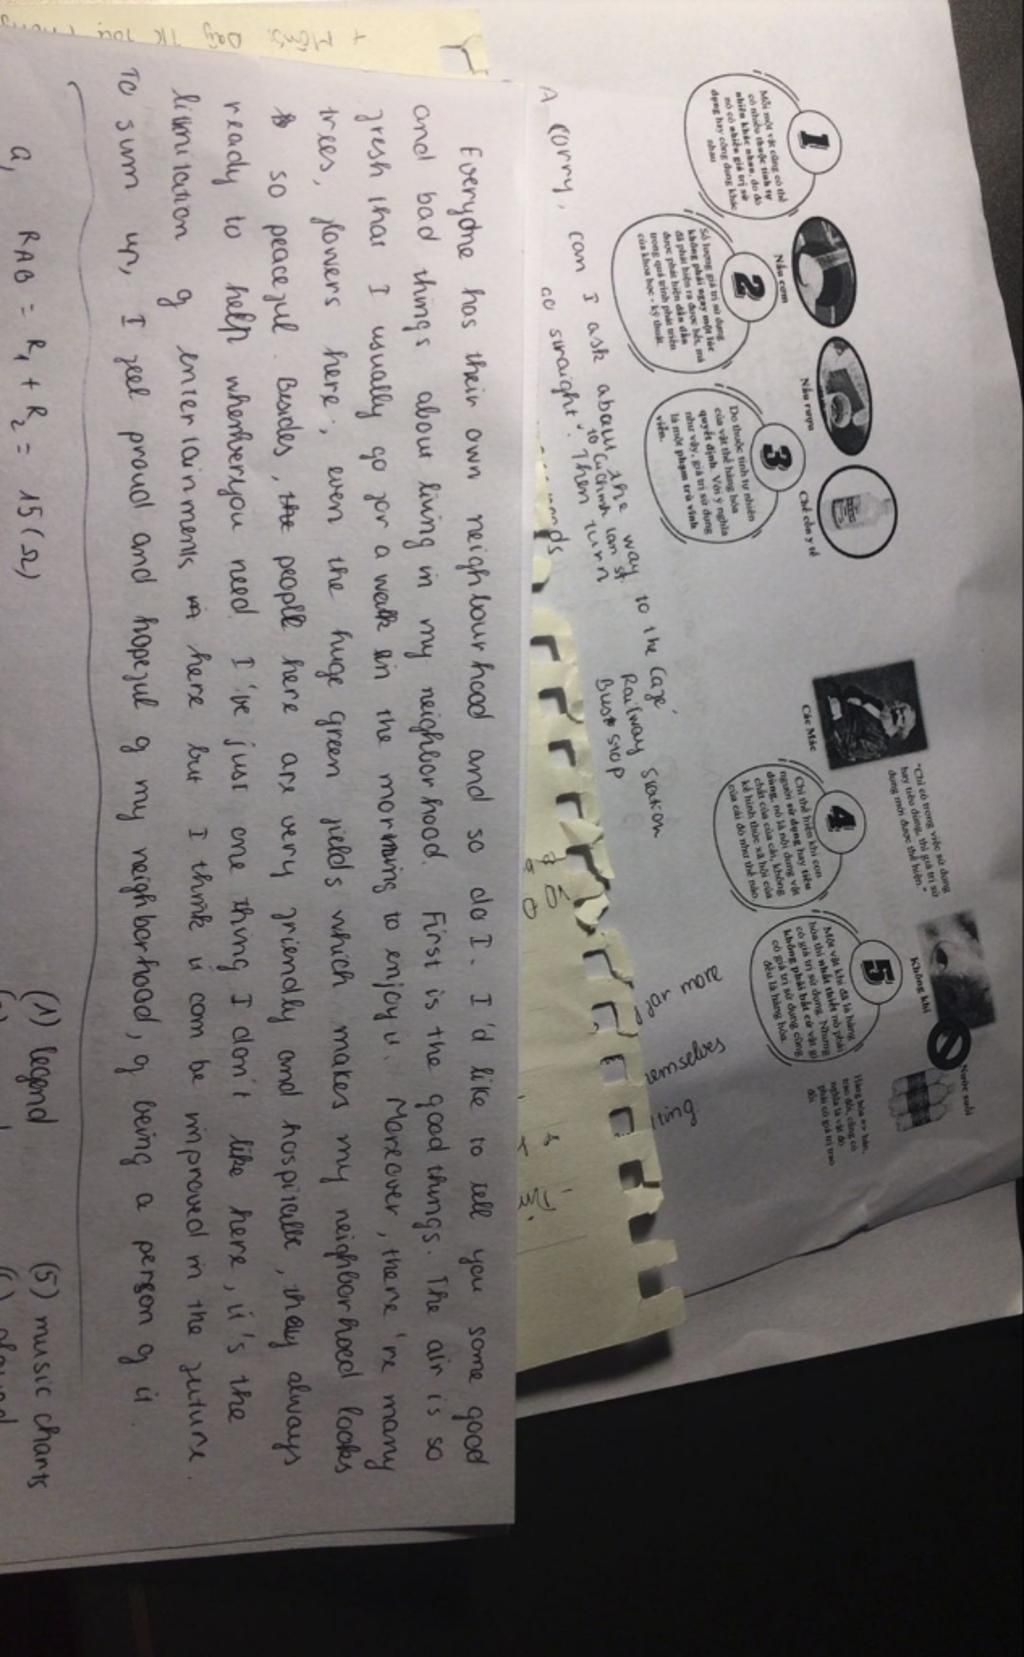 1
Mỗi một vật cũng có thể
có nhiều thuộc tính tự
nhiên khác nhau, do đó
nó có nhiều giá trị sử
dụng hay công dụng khác
nhau
Nấu cơm
2
Số lượng giá trị sử dụng
không phải ngay một lúc
đã phát hiện ra được hết, mà
được phát hiện dần dần
trong quá trình phát triển
của khoa học - kỹ thuật.
Nấu rượu
3
Do thuộc tính tự nhiên
của vật thể hàng hóa
quyết định. Với ý nghĩa
như vậy, giá trị sử dụng
là một phạm trù vĩnh
viễn.
Chế cồn y tế
Các Mác
"Chỉ có trong việc sử dụng
hay tiêu dùng, thì giá trị sử
dụng mới được thể hiện."
4
Chỉ thể hiện khi con
người sử dụng hay tiêu
dùng, nó là nội dung vật
chất của của cải, không
kể hình thức xã hội của
của cải đó như thế nào
Không khí
5
Một vật khi đã là hàng
hóa thì nhất thiết nó phải
có giá trị sử dụng. Nhưng
không phải bất cứ vật gì
có giá trị sử dụng cũng
đều là hàng hóa.
Nước suối
Hàng hóa => bán,
trao đổi, cũng có
nghĩa là vật đó
phải có giá trị trao
đổi
A Corry, can I ask about the way to the Cafe'
Railway station
Bus stop
Go straight. Then turn
for more
emselves
iting.
Everyone has their own neighbourhood and so do I. I'd like to tell you some good
and bad things about living in my neighborhood. First is the good things. The air is so
fresh that I usually go for a walk in the morning to enjoy it. Moreover, there're many
trees, flowers here, even the huge green fields which makes my neighborhood looks
so peaceful. Besides, the people here are very friendly and hospitable, they always
ready to help whenever you need. I've just one thing I don't like here, it's the
limitation of entertainments here but I think it can be improved in the future.
To sum up, I feel proud and hopeful of my neighborhood, of being a person of it.
a, RAB = R1 + R2 = 15 (Ω)
(1) legend (5) music charts